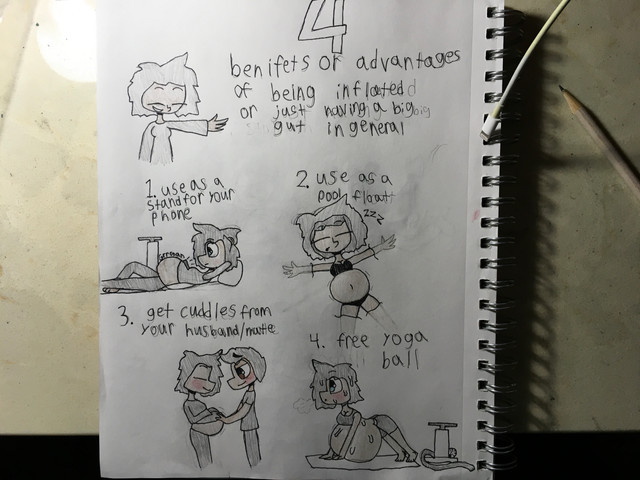 4
benifets or advantages
of being inflated
or just having a big
gut in general
1. use as a
stand for your
phone
2. use as a
pool float
zzz
3. get cuddles from
your husband/mate
4. free yoga
ball